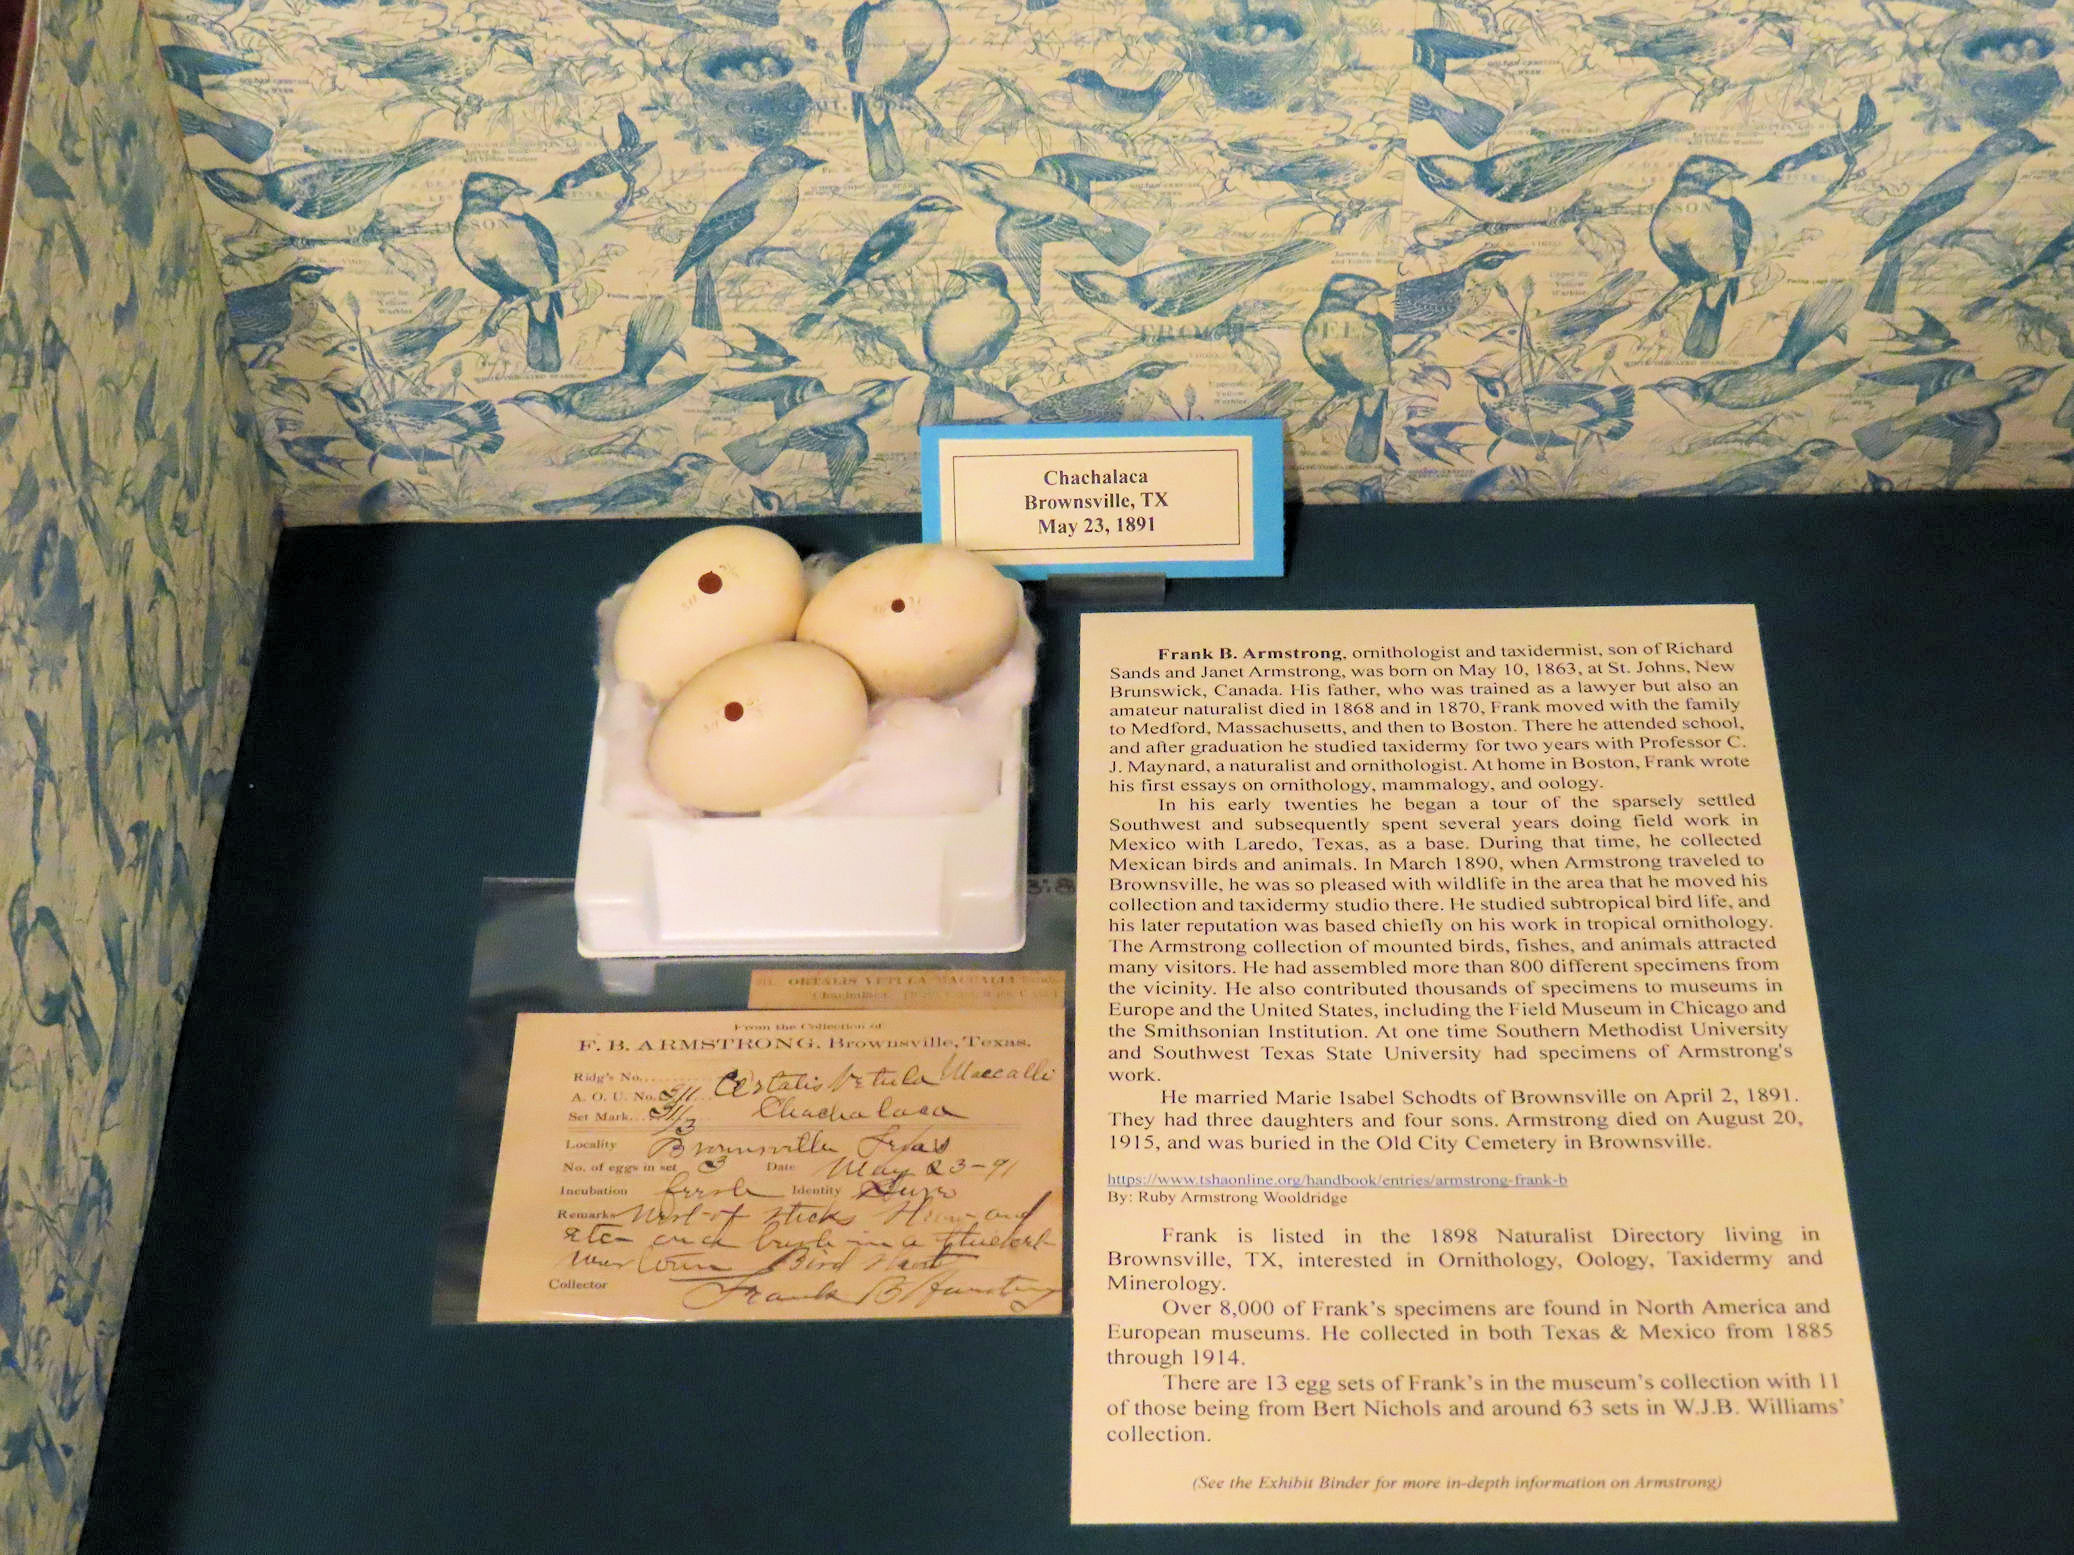 Chachalaca
Brownsville, TX
May 23, 1891
Frank B. Armstrong, ornithologist and taxidermist, son of Richard
Sands and Janet Armstrong, was born on May 10, 1863, at St. Johns, New
Brunswick, Canada. His father, who was trained as a lawyer but also an
amateur naturalist died in 1868 and in 1870, Frank moved with the family
to Medford, Massachusetts, and then to Boston. There he attended school,
and after graduation he studied taxidermy for two years with Professor C.
J. Maynard, a naturalist and ornithologist. At home in Boston, Frank wrote
his first essays on ornithology, mammalogy, and oology.
In his early twenties he began a tour of the sparsely settled
Southwest and subsequently spent several years doing field work in
Mexico with Laredo, Texas, as a base. During that time, he collected
Mexican birds and animals. In March 1890, when Armstrong traveled to
Brownsville, he was so pleased with wildlife in the area that he moved his
collection and taxidermy studio there. He studied subtropical bird life, and
his later reputation was based chiefly on his work in tropical ornithology.
The Armstrong collection of mounted birds, fishes, and animals attracted
many visitors. He had assembled more than 800 different specimens from
the vicinity. He also contributed thousands of specimens to museums in
Europe and the United States, including the Field Museum in Chicago and
the Smithsonian Institution. At one time Southern Methodist University
and Southwest Texas State University had specimens of Armstrong's
work.
He married Marie Isabel Schodts of Brownsville on April 2, 1891.
They had three daughters and four sons. Armstrong died on August 20,
1915, and was buried in the Old City Cemetery in Brownsville.
https://www.tshaonline.org/handbook/entries/armstrong-frank-b
By: Ruby Armstrong Wooldridge
Frank is listed in the 1898 Naturalist Directory living in
Brownsville, TX, interested in Ornithology, Oology, Taxidermy and
Minerology.
Over 8,000 of Frank's specimens are found in North America and
European museums. He collected in both Texas & Mexico from 1885
through 1914.
There are 13 egg sets of Frank's in the museum's collection with 11
of those being from Bert Nichols and around 63 sets in W.J.B. Williams'
collection.
(See the Exhibit Binder for more in-depth information on Armstrong)
ORTALIS VETULA MACCALLI
Chachalaca.
From the Collection of
F. B. ARMSTRONG, Brownsville, Texas.
Ridg's No. Ortalis Vetula Maccalli
A. O. U. No. 311
Set Mark 311/3 Chachalaca
Locality Brownsville Texas
No. of eggs in set 3 Date May 23-91
Incubation fresh Identity Sure
Remarks Nest of sticks
etc in a
near town Bird
Collector Frank B Armstrong